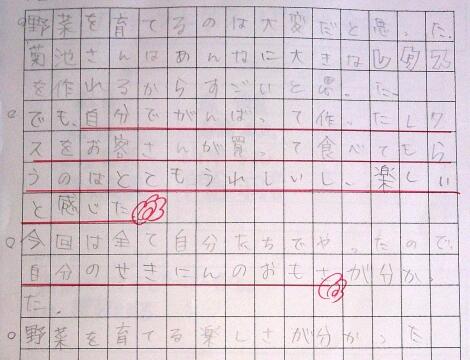 野菜を育てるのは大変だと思った。
菊池さんはあんなに大きなレタス
を作れるからすごいと思った。
でも、自分でがんばって作ったレタ
スをお客さんが買って食べてもら
うのはとてもうれしいし、楽しい
と感じた。
今回は全て自分たちでやったので、
自分のせきにんのおもさが分かっ
た。
野菜を育てる楽しさが分かった